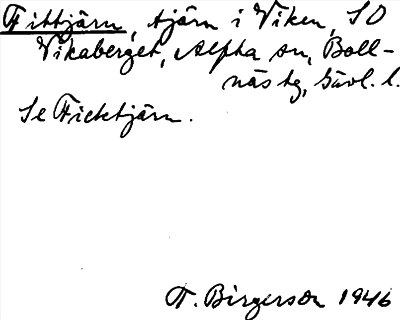 Fittjärn, tjärn i Viken, SO
Vikaberget, Alfta sn, Boll-
näs tg, Gävl. l.
Se Ficktjärn.
T. Birgerson 1946